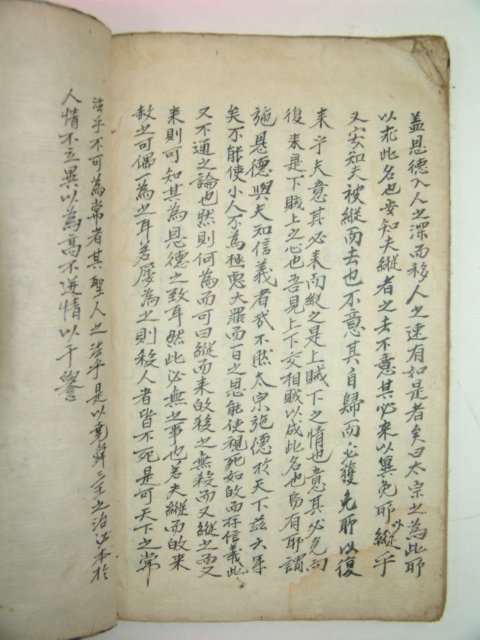 盖恩德入人之深而移人之速有如是者矣曰太宗之為此耶
以求此名也安知夫縱者之去不意其必来以冀免耶以縱乎
又安知夫被縱而去也不意其自歸而必獲免耶以復
来乎夫意其必来而縱之是上賊下之情也意其必免而
復来是下賊上之心也吾見上下交相賊以成此名也烏有耶謂
施恩德與夫知信義者哉不然太宗施德於天下茲六年
矣不能使小人不為極惡大罪而一日之恩能使視死如故而存信義此
又不通之論也然則何為而可曰縱而来故殺之無殺而又縱之而又
来則可知其為恩德之致耳然此必無之事也若夫縱而故来
赦之可偶一為之耳若屡為之則殺人者皆不死是可天下之常
法乎不可為常者其聖人之法乎是以堯舜三王之治必本於
人情不立異以為高不逆情以干譽